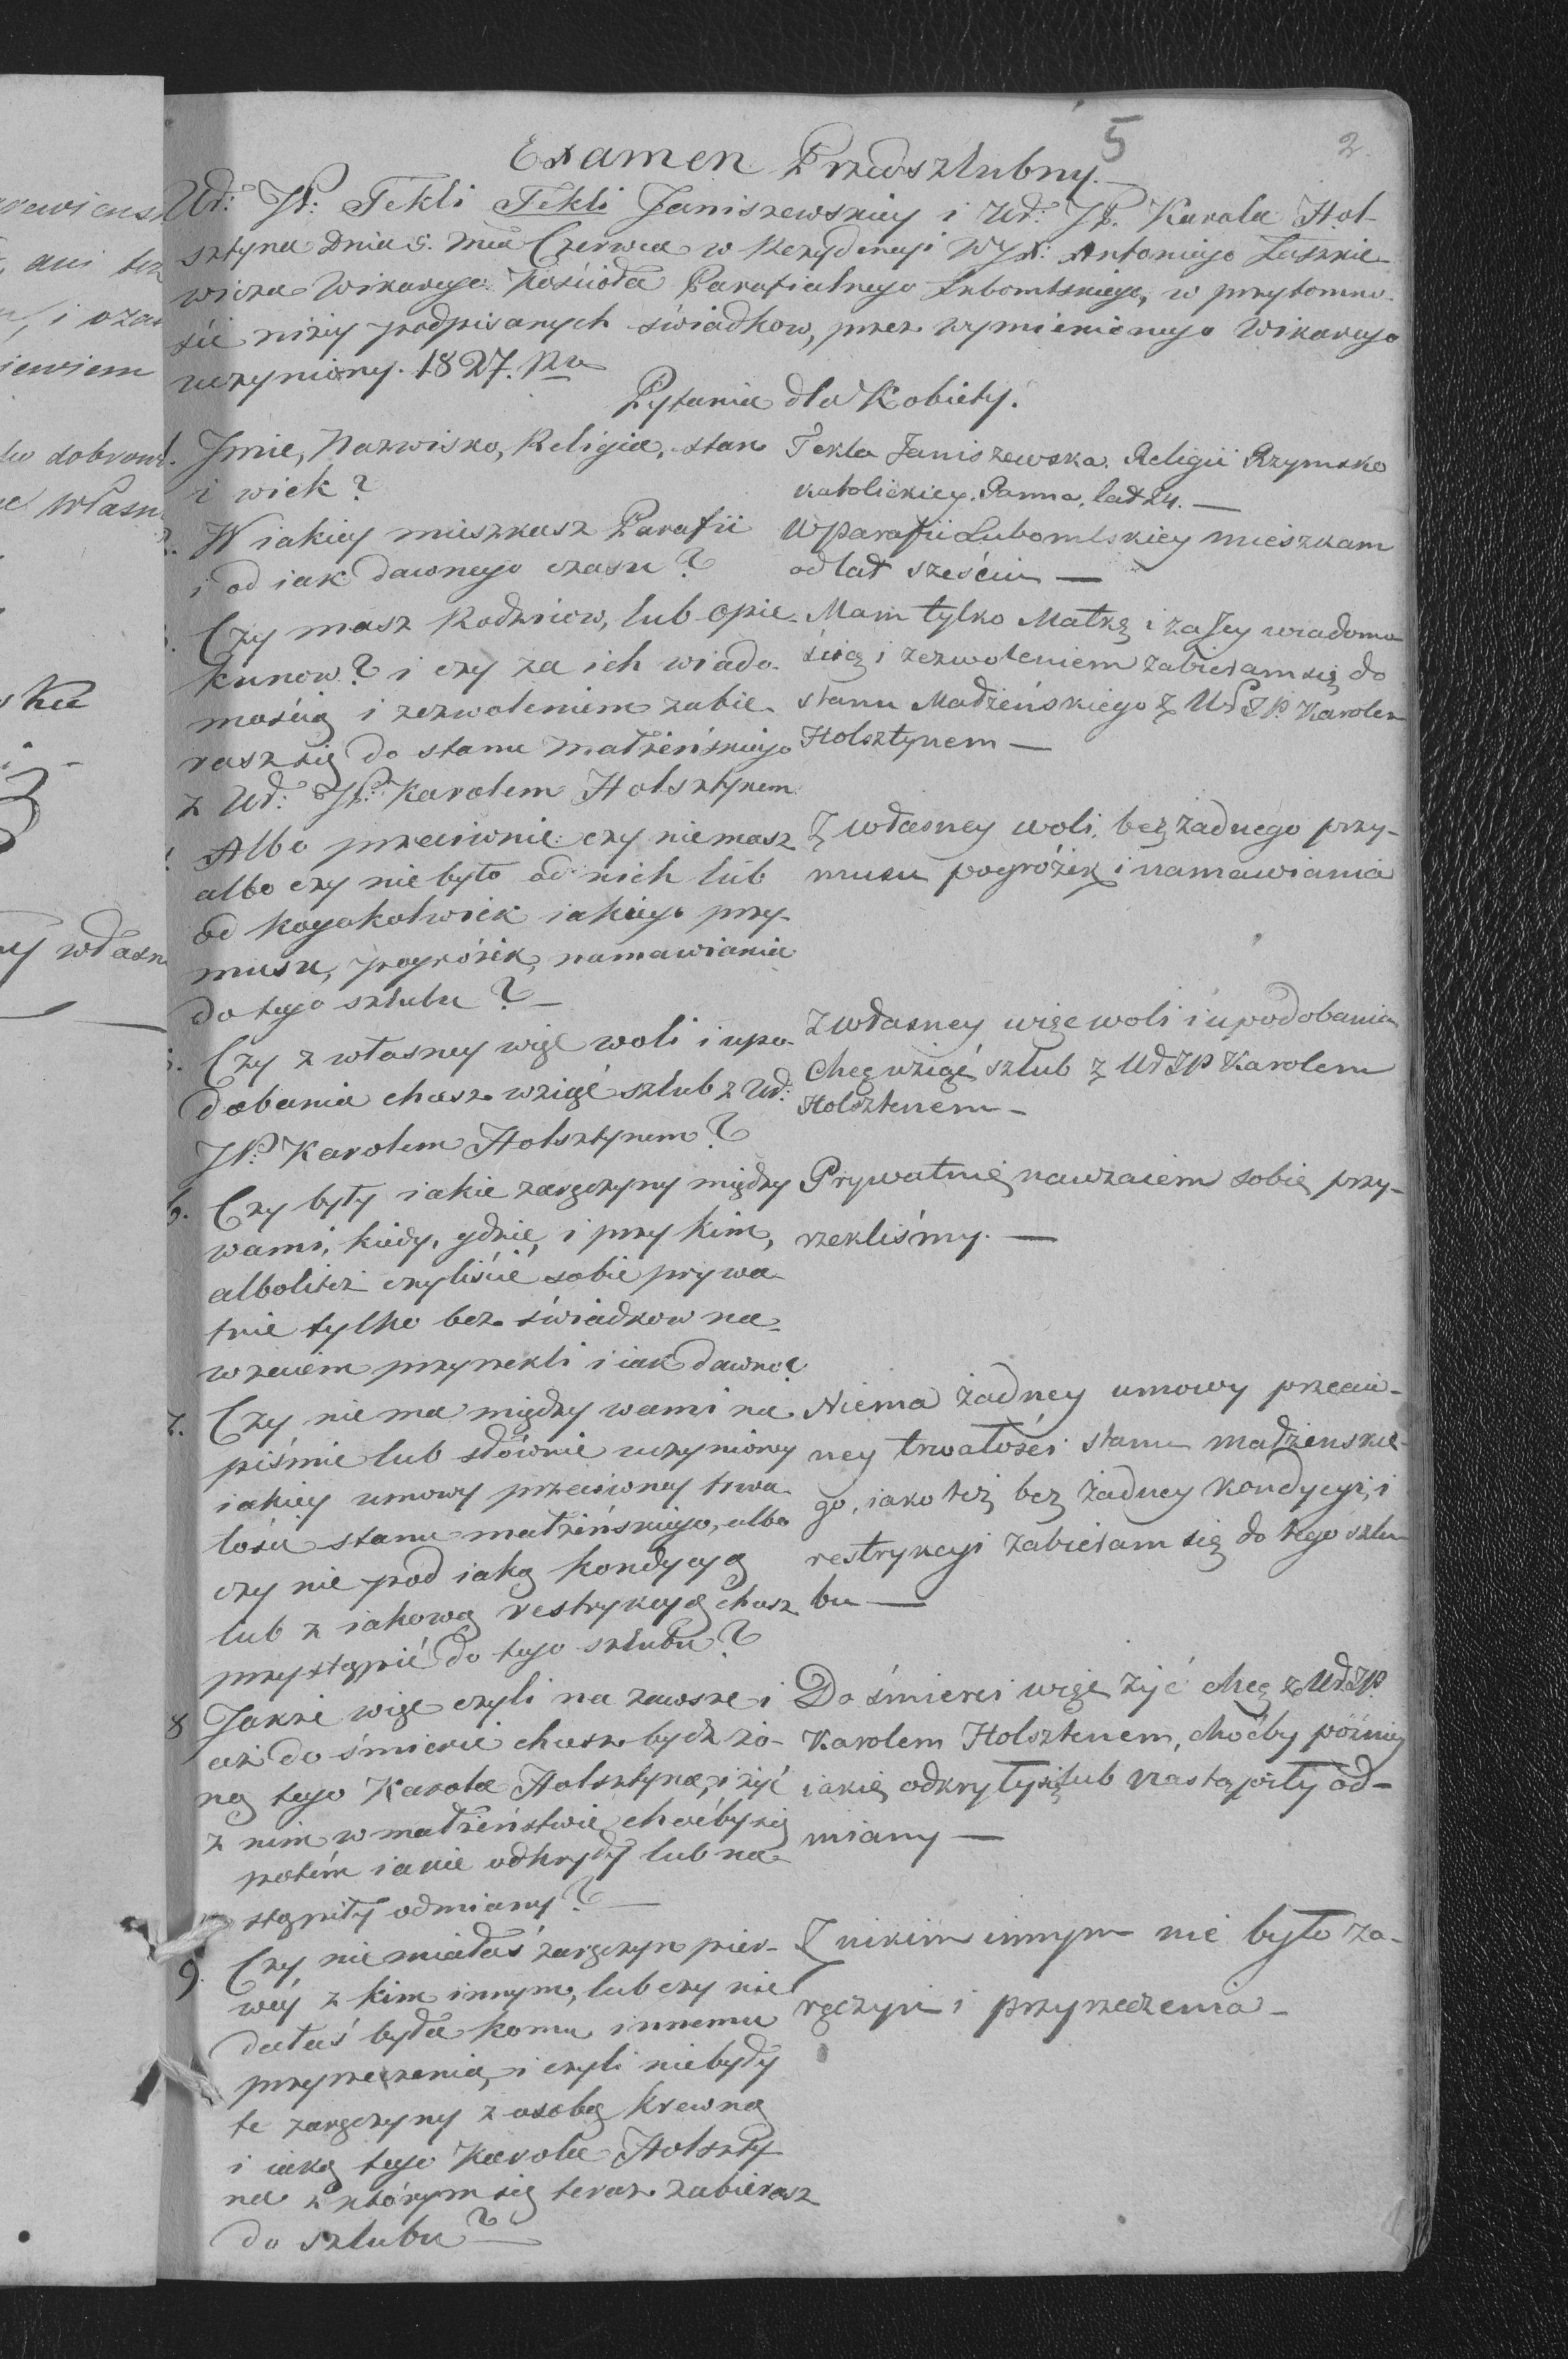 5
2.
Examen Przedszlubny.
Ur: JP: Tekli Tekli Janiszewskiey i Ur: JP. Karola Hol-
sztyna Dnia 5. Mca Czerwca w Rezydencyi WJX: Antoniego Laszkie-
wicza Wikarego Kościoła Parafialnego Lubomlskiego, w przytomno-
ści niżey podpisanych świadkow, przez wymienionego Wikarego
uczyniony. 1827. Ro
Pytania dla Kobiety.
Jmie, Nazwisko, Religia, stan
i wiek?
Tekla Janiszewska. Religii Rzymsko
katolickiey. Panna, lat 24. —
W iakiey mieszkasz Parafii
i od iak dawnego czasu?
W Parafii Lubomlskiey mieszkam
od lat sześciu —
Czy masz Rodziców, lub opie-
kunow? i czy za ich wiado-
mością i zezwoleniem zabie-
rasz się do stanu małżeńskiego
z Ur: JP: Karolem Holsztynem
Mam tylko Matkę i za Jey wiadomo-
ścią i zezwoleniem zabieram się do
stanu Madżeńskiego z Ur JP. Karolem
Holsztynem —
Albo przeciwnie: czy nie masz
albo czy nie było od nich lub
od kogokolwiek iakiego przy-
musu, pogrózek, namawiania
do tego szlubu? —
Z własney woli, bez żadnego przy-
musu pogróżek i namawiania
Czy z własney więc woli i upo-
dobania chcesz wziąć szlub z Ur:
JP: Karolem Holsztynem?
Z własney więc woli i upodobania
Chcę wziąć szlub z Ur JP Karolem
Holsztenem —
6. Czy były iakie zaręczyny między
wami, kiedy, gdzie, i przy kim,
alboliteż czyliście sobie prywa-
tnie tylko bez świadkow na-
wzaiem przyrzekli i iak dawno?
Prywatnie nawzaiem sobie przy-
rzekliśmy. —
7. Czy nie ma między wami na
piśmie lub słównie uczynioney
iakiey umowy przeciwney trwa-
łości stanu małżeńskiego, albo
czy nie pod iaką kondycyą
lub z iakową restrykcyą chcesz
przystąpić do tego szlubu?
Niema żadney umowy przeciw-
ney trwałości stanu madżenskie-
go, iako też bez żadney kondycyi, i
restrykcyi zabieram się do tego szlu-
bu —
8 Jakże więc czyli na zawsze i
aż do śmierci chcesz bydź żo-
ną tego Karola Holsztyna, i żyć
z nim w małżeństwie choćby się
potém iakie odkryły lub na-
stąpiły odmiany? —
Do śmierci więc żyć chcę z Ur JP.
Karolem Holsztenem, choćby późniey
iakie odkryły się lub nastąpiły od-
miany —
9. Czy nie miałaś zaręczyn pier-
wéy z kim innym, lub czy nie
dałaś była komu innemu
przyrzeczenia, i czyli nie były
te zaręczyny z osobą krewną
i iaką tego Karola Holszty-
na z którym się teraz zabierasz
do szlubu? —
Z nikim innym nie było za-
ręczyn i przyrzeczenia —